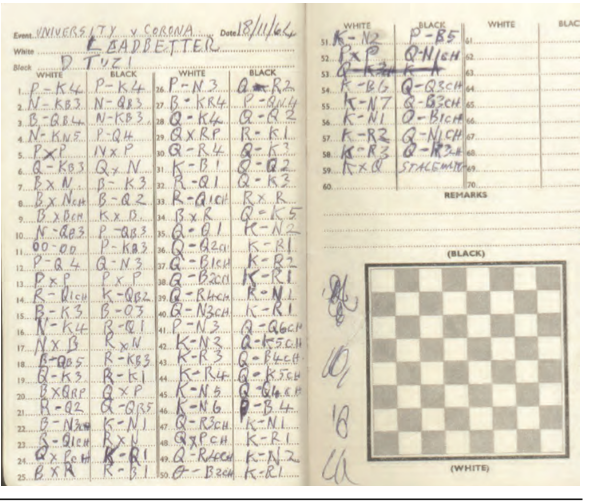 Event UNIVERSITY v CORONA Date 18/11/64
White L LEADBETTER
Black D TUZI
WHITE BLACK WHITE BLACK
1. P-K4 P-K4 26. P-N3 Q-R2
2. N-KB3 N-QB3 27. B-KR4 P-QN4
3. B-QB4 N-KB3 28. Q-K4 Q-Q2
4. N-KN5 P-Q4 29. QxRP R-K1
5. PxP NxP 30. Q-R4 Q-K3
6. Q-KB3 QxN 31. K-B1 Q-Q2
7. BxN B-K3 32. R-Q1 Q-K3
8. BxNCH B-Q2 33. R-Q1CH RxR
9. BxBCH KxB 34. BxR Q-K5
10. N-QB3 P-QB3 35. Q-Q1 K-N2
11. OO-OO P-KB3 36. Q-Q2CH K-R1
12. P-Q4 Q-N3 37. Q-B1CH K-R2
13. PxP PxP 38. Q-B2CH K-R1
14. R-Q1CH K-QB2 39. Q-R4CH R-N1
15. B-K3 B-Q3 40. Q-N3CH K-R1
16. N-K4 R-Q1 41. P-N3 Q-Q6CH
17. NxB RxN 42. K-N2 Q-K5CH
18. B-QB5 R-KB3 43. K-R3 Q-B4CH
19. Q-K3 R-K1 44. K-R4 Q-K5CH
20. BxQRP QxP 45. K-N5
21. R-Q2 Q-QB5 46. K-N6 Q-B4
22. B-N3CH K-N1 47. Q-R3CH K-N1
23. R-Q1CH RxN 48. QxPCH K-R1
24. QxPCH R-Q1 49. Q-R4CH K-N2
25. BxR R-B1 50. Q-B2CH K-R1
WHITE BLACK WHITE BLAC
51. K-N2 P-B5 61.
52. PxP Q-N1CH 62.
53. 63.
54. K-B6 Q-Q3CH 64.
55. K-N7 Q-B3CH 65.
56. K-N1 Q-B1CH 66.
57. K-R2 Q-N1CH 67.
58. K-R3 Q-R3CH 68.
59. KxQ STALEMATE 69.
60. 70.
REMARKS
(BLACK)
(WHITE)